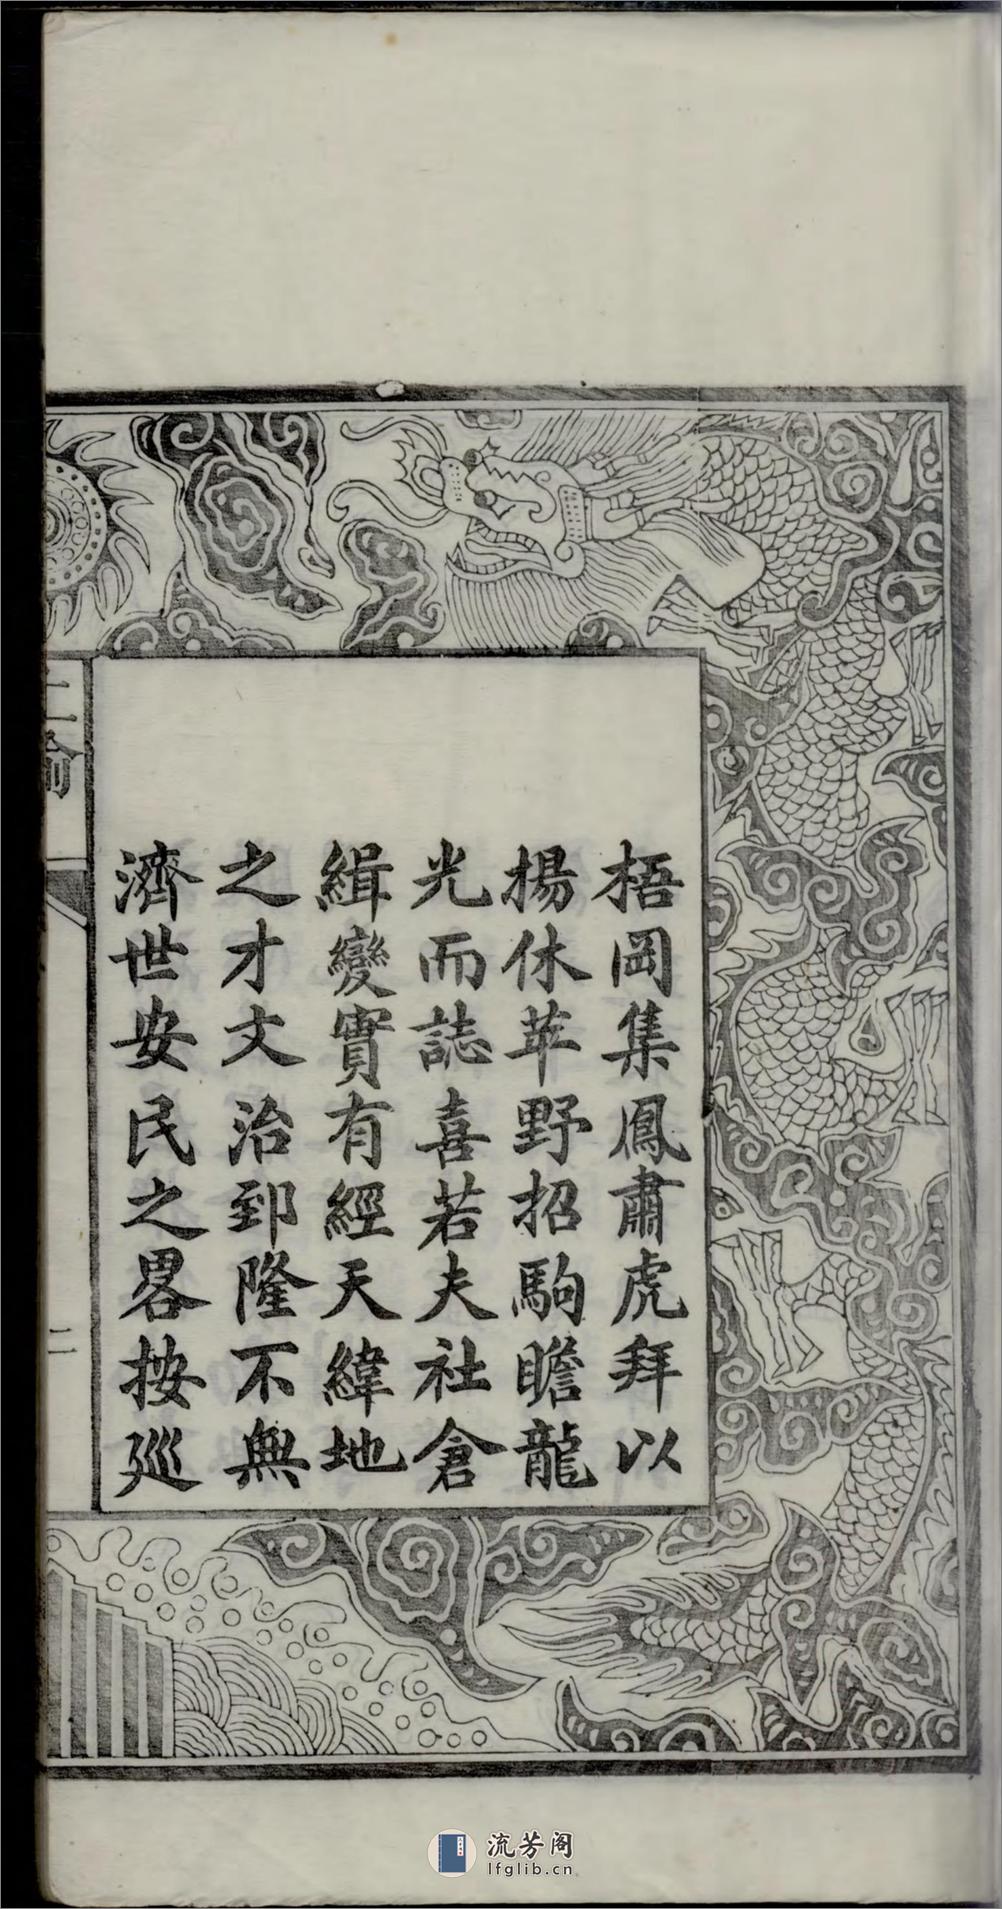 梧岡集鳳肅虎拜以
揚休苹野招駒瞻龍
光而誌喜若夫社倉
緝變實有經天緯地
之才文治郅隆不無
濟世安民之畧按巡
上諭
二
流芳阁
lfglib.cn